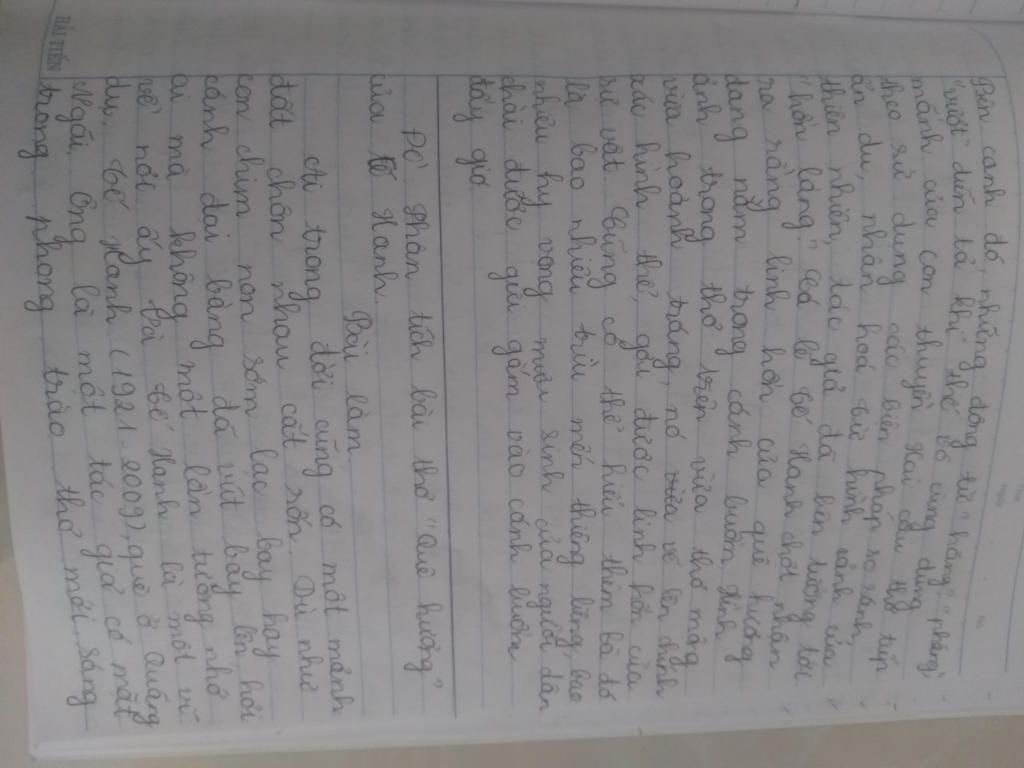 Bên cạnh đó, những động từ "hăng", "phăng",
"vượt" diễn tả khí thế vô cùng dũng
mãnh của con thuyền. Hai câu thơ tiếp
theo sử dụng các biện pháp so sánh,
ẩn dụ, nhân hoá. Từ hình ảnh của
thiên nhiên, tác giả đã liên tưởng tới
"hồn làng". Có lẽ Tế Hanh chợt nhận
ra rằng linh hồn của quê hương
đang nằm trong cánh buồm. Hình
ảnh trong thơ trên vừa thơ mộng
vừa hoành tráng, nó vừa vẽ lên chính
xác hình thể, gợi được linh hồn của
sự vật. Cũng có thể hiểu thêm là đó
là bao nhiêu trìu mến thiêng liêng, bao
nhiêu hy vọng mưu sinh của người dân
chài được gửi gắm vào cánh buồm
đầy gió
Đề: Phân tích bài thơ "Quê hương"
của Tế Hanh.
Bài làm
Ai trong đời cũng có một mảnh
đất chôn nhau cắt rốn. Dù như
con chim non sớm lạc bay hay
cánh đại bàng đã vút bay lên, hỏi
ai mà không một lần tưởng nhớ
về nơi ấy. Và Tế Hanh là một ví
dụ. Tế Hanh (1921-2009), quê ở Quảng
Ngãi. Ông là một tác giả có mặt
trong phong trào thơ mới, sáng
HẢI TIẾN
Thứ
Ngày